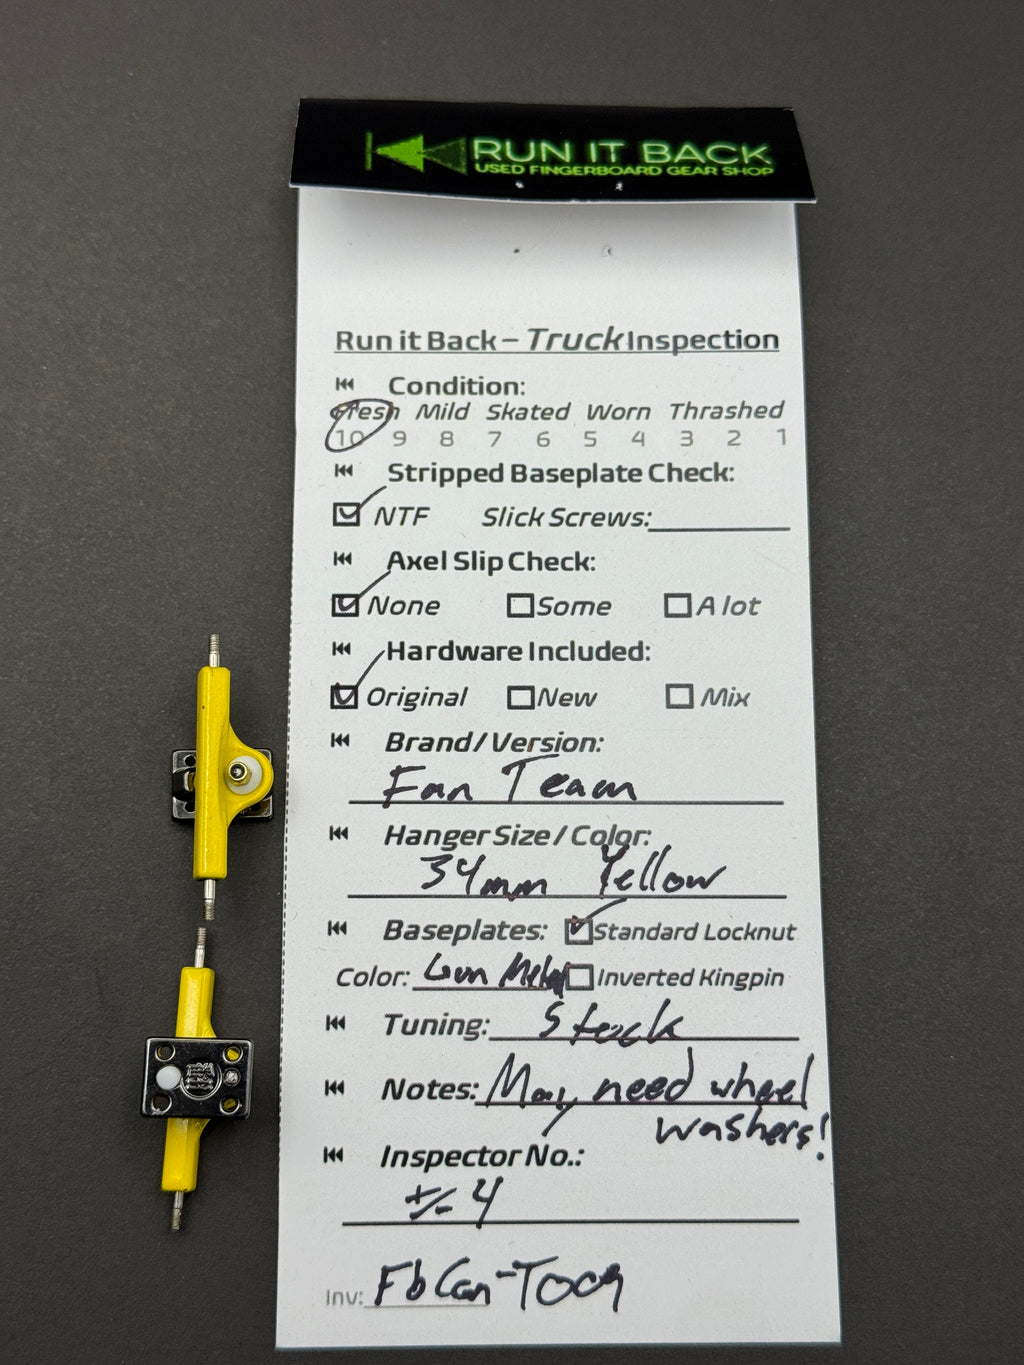 RUN IT BACK
USED FINGERBOARD GEAR SHOP
Run it Back – Truck Inspection
Condition:
Fresh Mild Skated Worn Thrashed
10 9 8 7 6 5 4 3 2 1
Stripped Baseplate Check:
NTF Slick Screws:
Axel Slip Check:
None Some A lot
Hardware Included:
Original New Mix
Brand/Version:
Fan Team
Hanger Size/Color:
34mm Yellow
Baseplates: Standard Locknut
Color: Gun Metal Inverted Kingpin
Tuning: Stock
Notes: May need wheel
washers!
Inspector No.:
+/- 4
Inv: FbCan-T009